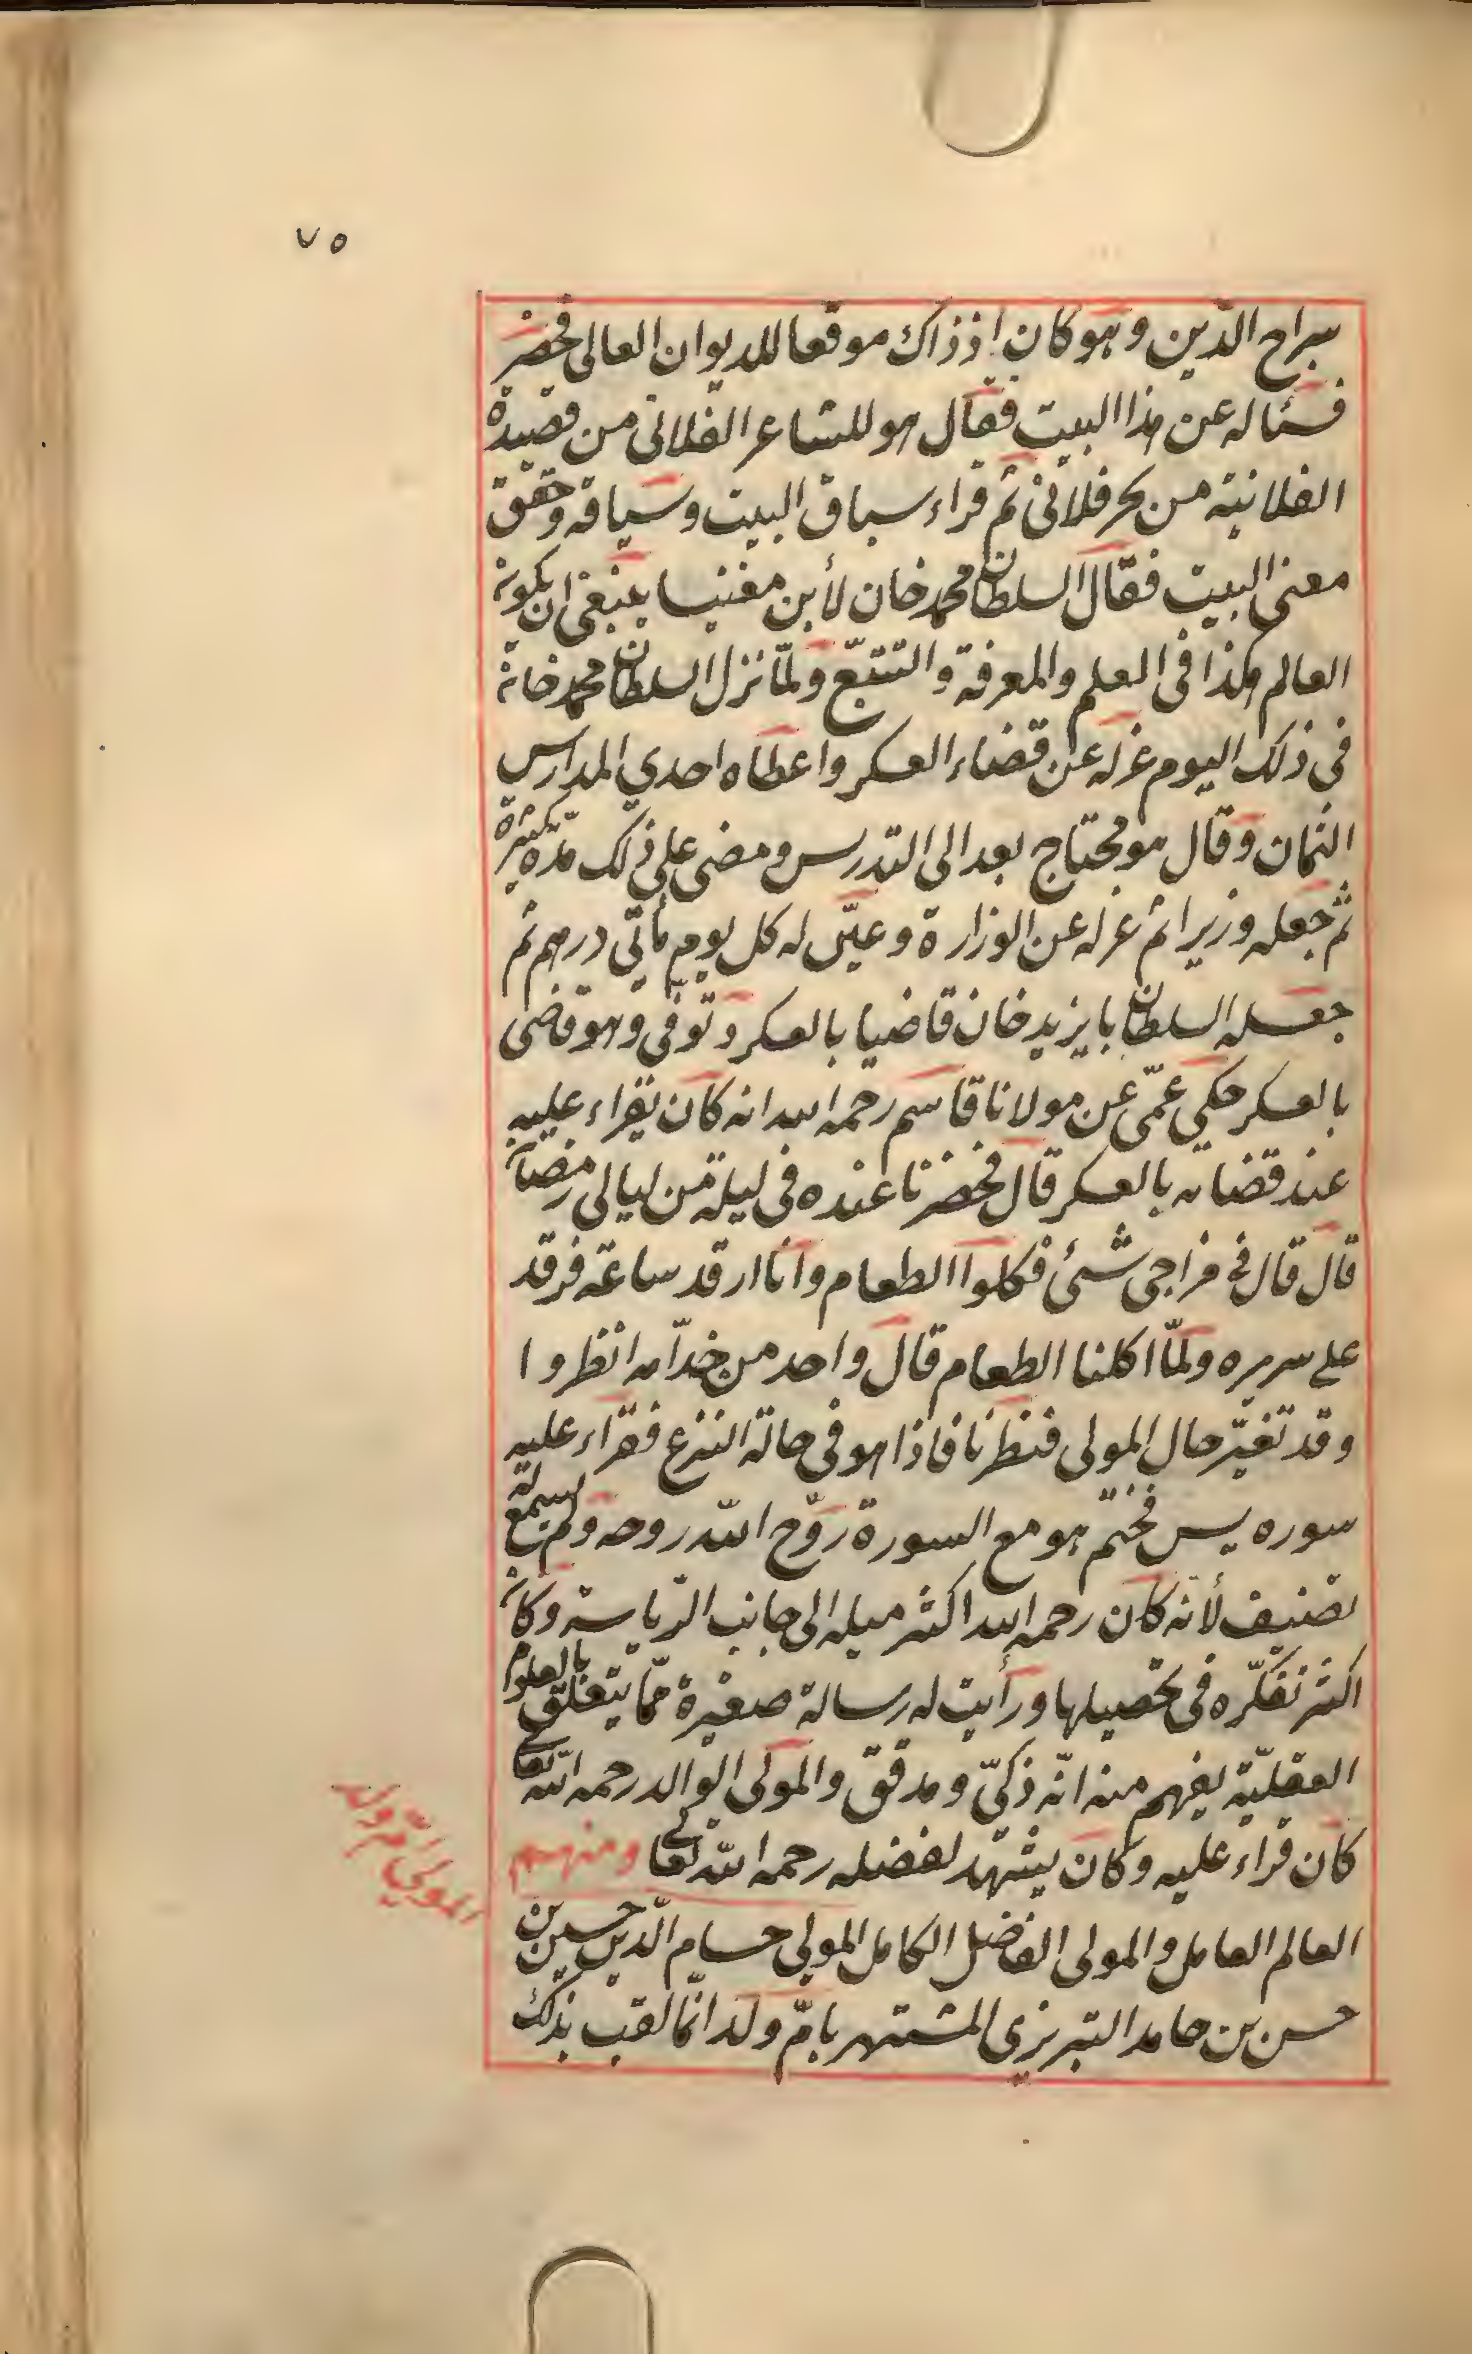 ٧٥
سراج الدّين وهو كان اذ ذاك موقعا للديوان العالى فحضر
فسئاله عن هذا البيت فقال هو للشاعر الفلانى من قصيدة
الفلانية من بحر فلانى ثم قراء سباق البيت وسياقه وحقق
معنى البيت فقال السلطان محمد خان لأبن مغنيسا ينبغى ان يكون
العالم هكذا فى العلم والمعرفة والتتبّع ولمّا نزل السلطان محمد خان
فى ذلك اليوم عزله عن قضاء العسكر واعطاه احدي المدارس
الثمان وقال هو محتاج بعد الى التدرس ومضى على ذلك مدّة كثيرة
ثم جعله وزيرا ثم عزله عن الوزارة وعيّن له كل يوم مأتى درهم ثم
جعله السلطان بايزيد خان قاضيا بالعسكر وتوفى وهو قاضى
بالعسكر حكي عمّى عن مولانا قاسم رحمه الله انه كان يقراء عليه
عند قضائه بالعسكر قال فحضرنا عنده فى ليلة من ليالى رمضان
قال قال فى مزاجى شئ فكلوا الطعام وانا ارقد ساعة فرقد
على سريره ولمّا اكلنا الطعام قال واحد من خدّامه انظروا
وقد تغيّر حال المولى فنظرنا فاذا هو فى حالة النزع فقراء عليه
سوره يس فختم هو مع السورة روّح الله روحه ولم يسمع له
تصنيف لأنه كان رحمه الله اكثر ميله الى جانب الرّياسة وكان
اكثر تفكّره فى تحصيلها ورأيت له رسالة صغيرة ممّا يتعلق بالعلوم
العقليّة يفهم منه انّه ذكىّ ومدقق والمولى الوالد رحمه الله تعالى
كان قراء عليه وكان يشهد لفضله رحمه الله تعالى ومنهم
المولى امّ ولد
العالم العامل والمولى الفاضل الكامل المولى حسام الدّين حسين بن
حسن بن حامد التبريزى المشتهر بامّ ولد انّما لقب بذلك